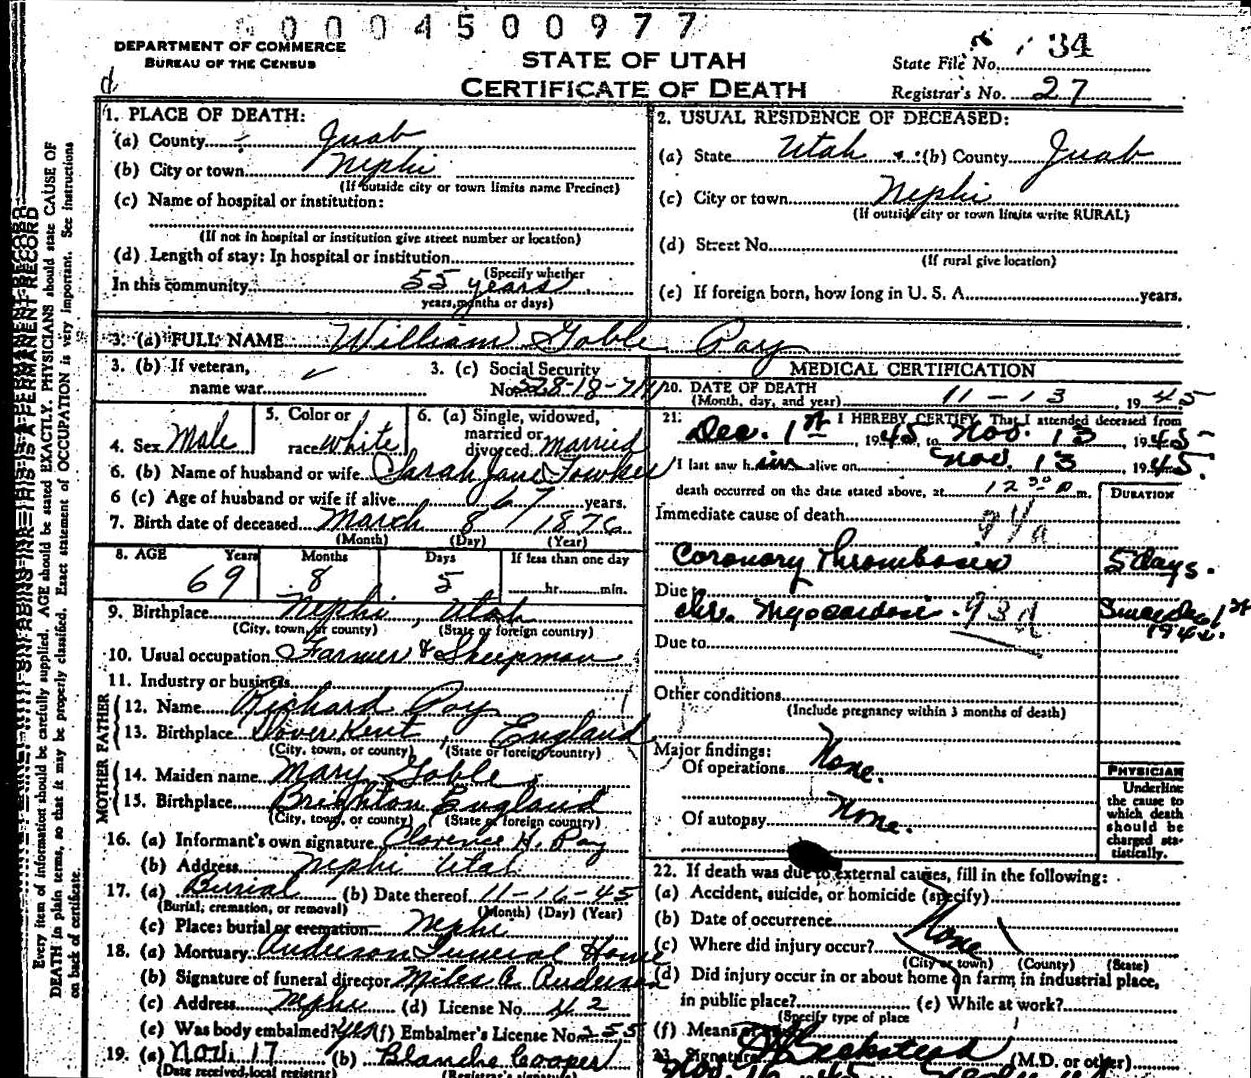 0004500977
DEPARTMENT OF COMMERCE
BUREAU OF THE CENSUS
STATE OF UTAH
CERTIFICATE OF DEATH
State File No. 34
Registrar's No. 27
1. PLACE OF DEATH:
(a) County Juab
(b) City or town Nephi
(If outside city or town limits name Precinct)
(c) Name of hospital or institution:
(If not in hospital or institution give street number or location)
(d) Length of stay: In hospital or institution
(Specify whether
In this community 55 years
years, months or days)
2. USUAL RESIDENCE OF DECEASED:
(a) State Utah (b) County Juab
(c) City or town Nephi
(If outside city or town limits write RURAL)
(d) Street No.
(If rural give location)
(e) If foreign born, how long in U. S. A. years.
3. (a) FULL NAME William Goble Pay
3. (b) If veteran,
name war
3. (c) Social Security
No. 528-18-
4. Sex Male
5. Color or
race white
6. (a) Single, widowed,
married or
divorced. Married
6. (b) Name of husband or wife Sarah Jane
6 (c) Age of husband or wife if alive 67 years.
7. Birth date of deceased March 8 1876
(Month) (Day) (Year)
8. AGE Years Months Days If less than one day
69 8 5 hr. min.
9. Birthplace Nephi, Utah
(City, town, or county) (State or foreign country)
10. Usual occupation Farmer & Sheepman
11. Industry or business
FATHER
12. Name Richard Pay
13. Birthplace Dover Kent, England
(City, town, or county) (State or foreign country)
MOTHER
14. Maiden name Mary Goble
15. Birthplace Brighton England
(City, town, or county) (State or foreign country)
16. (a) Informant's own signature Clarence H. Pay
(b) Address Nephi Utah
17. (a) Burial (b) Date thereof 11-16-45
(Burial, cremation, or removal) (Month) (Day) (Year)
(c) Place: burial or cremation Nephi
18. (a) Mortuary Anderson Funeral Home
(b) Signature of funeral director Miles Anderson
(c) Address Nephi (d) License No. 42
(e) Was body embalmed? Yes (f) Embalmer's License No. 255
19. (a) Nov. 17 (b) Blanche Cooper
(Date received local registrar) (Registrar's signature)
MEDICAL CERTIFICATION
20. DATE OF DEATH
(Month, day, and year) 11-13, 1945
21. I HEREBY CERTIFY, That I attended deceased from
Dec. 1st, 1945 to Nov. 13, 1945
I last saw him alive on Nov. 13 1945
death occurred on the date stated above, at 12 m.
DURATION
Immediate cause of death
Coronary Thrombosis 5 days.
Due to
Chr. Myocarditis 93d Since Dec 1st
Due to
Other conditions
(Include pregnancy within 3 months of death)
Major findings:
Of operations None.
Of autopsy None.
PHYSICIAN
Underline
the cause to
which death
should be
charged sta-
tistically.
22. If death was due to external causes, fill in the following:
(a) Accident, suicide, or homicide (specify)
(b) Date of occurrence None
(c) Where did injury occur?
(City or town) (County) (State)
(d) Did injury occur in or about home on farm, in industrial place,
in public place? (e) While at work?
(Specify type of place
(f) Means
23. Signature Beckstead (M.D. or other)
Nov. 16 45
Every item of information should be carefully supplied. AGE should be stated EXACTLY. PHYSICIANS should state CAUSE OF
DEATH in plain terms, so that it may be properly classified. Exact statement of OCCUPATION is very important. See instructions
on back of certificate.